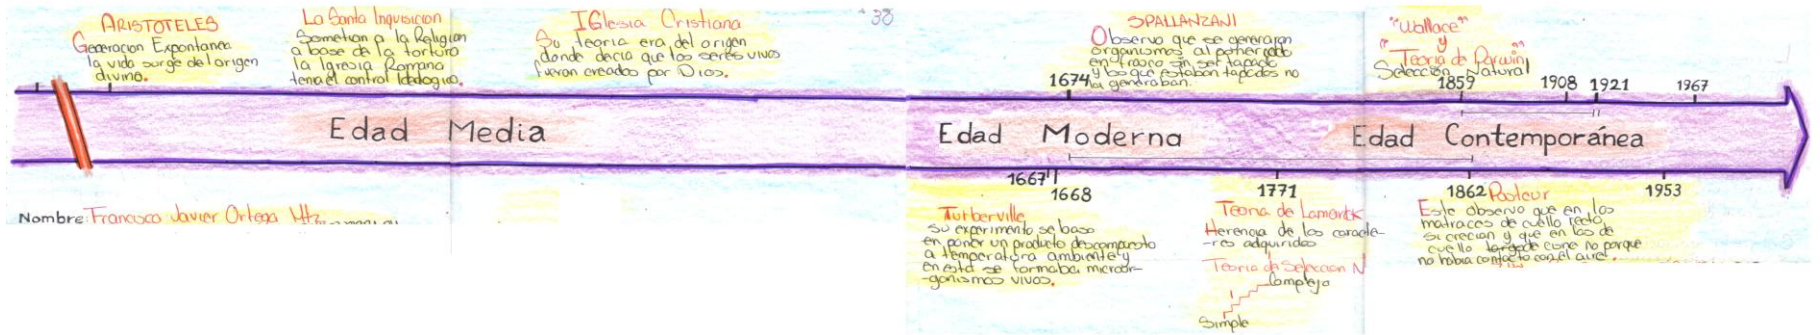 ARISTOTELES
Generacion Expontanea
la vida surge del origen
divino.
La Santa Inquisicion
Sometian a la Religion
a base de la tortura
la Igresia Romana
tenia el control Idologico.
IGlesia Cristiana
Su teoria era del origen
donde decia que los seres vivos
fueron creados por Dios.
38
SPALLANZANI
Observo que se generaron
organismos al poner caldo
en frasco sin ser tapado
y los que estaban tapados no
la generaban.
"Wallace"
y
"Teoria de Darwin"
Selección Natural
1674
1859
1908
1921
1967
Edad Media
Edad Moderna
Edad Contemporánea
1667
1668
1771
1862
1953
Nombre: Francisco Javier Ortega Mtz.
Turberville
su experimento se baso
en poner un producto descompuesto
a temperatura ambiente y
en esta se formaba microor-
-ganismos vivos.
Teoria de Lamarck
Herencia de los caracte-
-res adquiridos
Teoria de Seleccion N
Complejo
Simple
Pasteur
Este observo que en los
matraces de cuello recto
si crecian y que en los de
cuello de cisne no porque
no habia contacto con el aire.